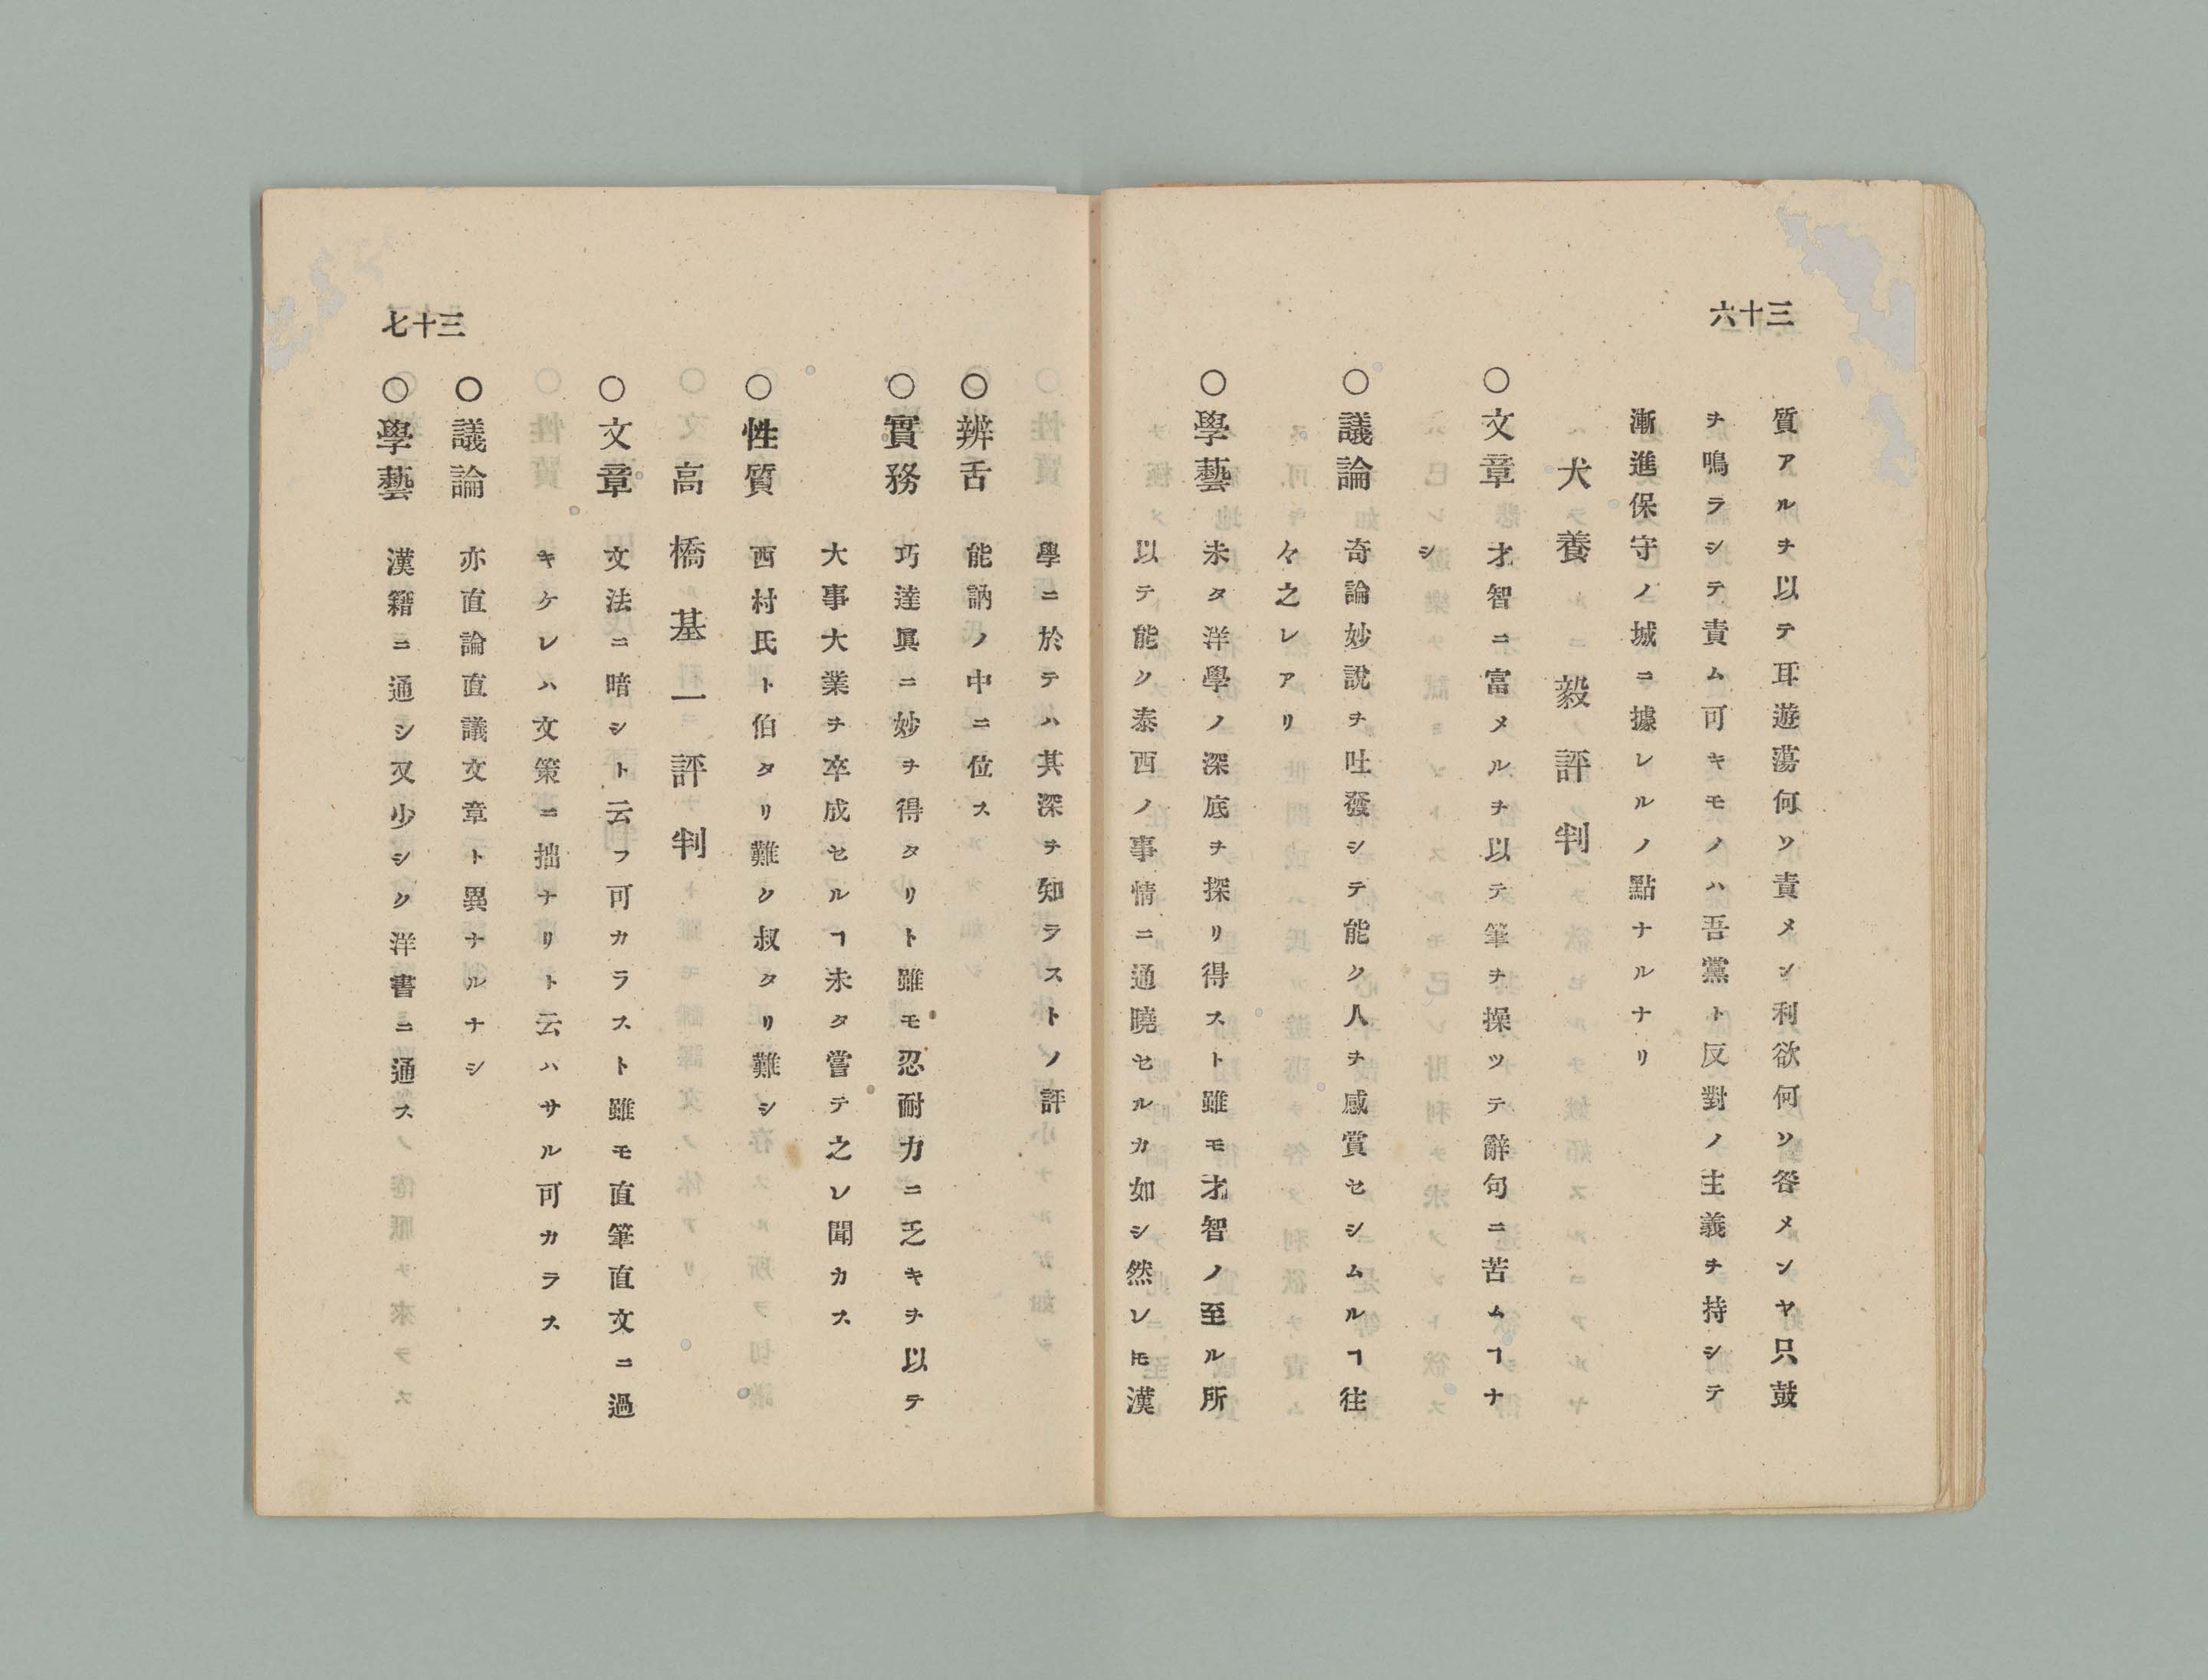 三十六
質アルヲ以テ耳遊蕩何ソ責メン利欲何ソ咎メンヤ只鼓
ヲ鳴ラシテ責ム可キモノハ吾黨ト反對ノ主義チ持シテ
漸進保守ノ城コ據レルノ點ナルナリ
犬養毅評判
○文章 才智ニ富メルヲ以テ筆ヲ操ツテ辭句ニ苦ムヿナ
シ
○議論 奇論妙說ヲ吐發シテ能ク人ヲ感賞セシムルヿ往
々之レアリ
○學藝 未タ洋學ノ深底ヲ探リ得スト雖モ才智ノ至ル所
以テ能ク泰西ノ事情ニ通曉セルカ如シ然レ𪜈漢
三十七
學ニ於テハ其深ヲ知ラストノ評
○辨舌 能訥ノ中ニ位ス
○實務 巧達眞ニ妙ヲ得タリト雖モ忍耐力ニ乏キヲ以テ
大事大業ヲ卒成セルヿ未タ嘗テ之レ聞カス
○性質 西村氏ト伯タリ難ク叔タリ難シ
高橋基一評判
○文章 文法ニ暗シト云フ可カラスト雖モ直筆直文ニ過
キケレハ文策ニ拙ナリト云ハサル可カラス
○議論 亦直論直議文章ト異ナルナシ
○學藝 漢籍ニ通シ又少シク洋書ニ通ス